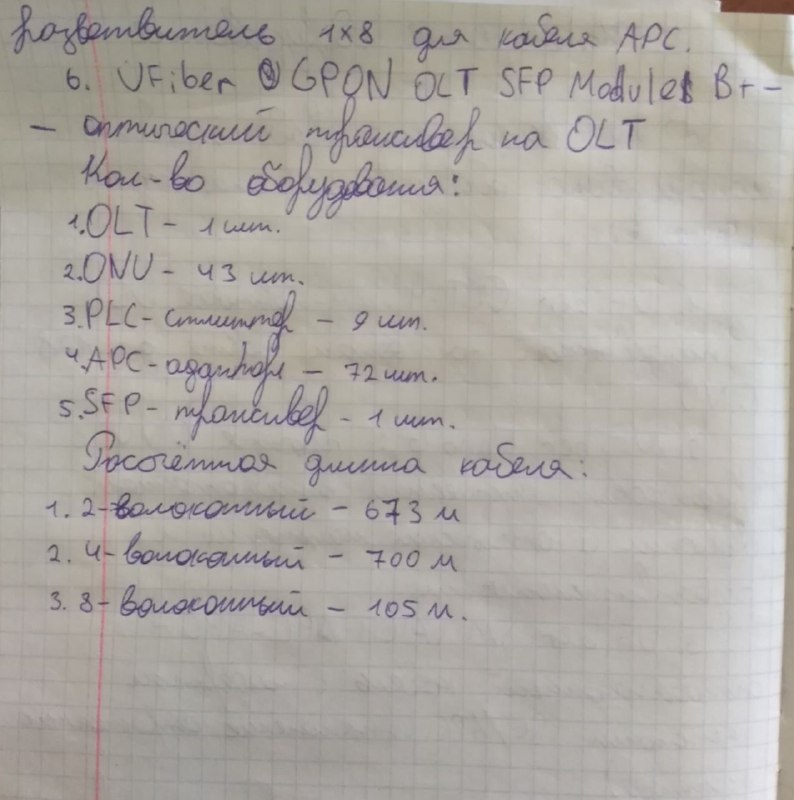 разветвитель 1x8 для кабеля APC.
6. UFiber GPON OLT SFP Module B+ -
- оптический трансивер на OLT
Кол-во оборудования:
1. OLT - 1 шт.
2. ONU - 43 шт.
3. PLC-сплиттер - 9 шт.
4. APC-адаптеры - 72 шт.
5. SFP-трансивер - 1 шт.
Рассчётная длина кабеля:
1. 2-волоконный - 673 м
2. 4-волоконный - 700 м
3. 8-волоконный - 105 м.